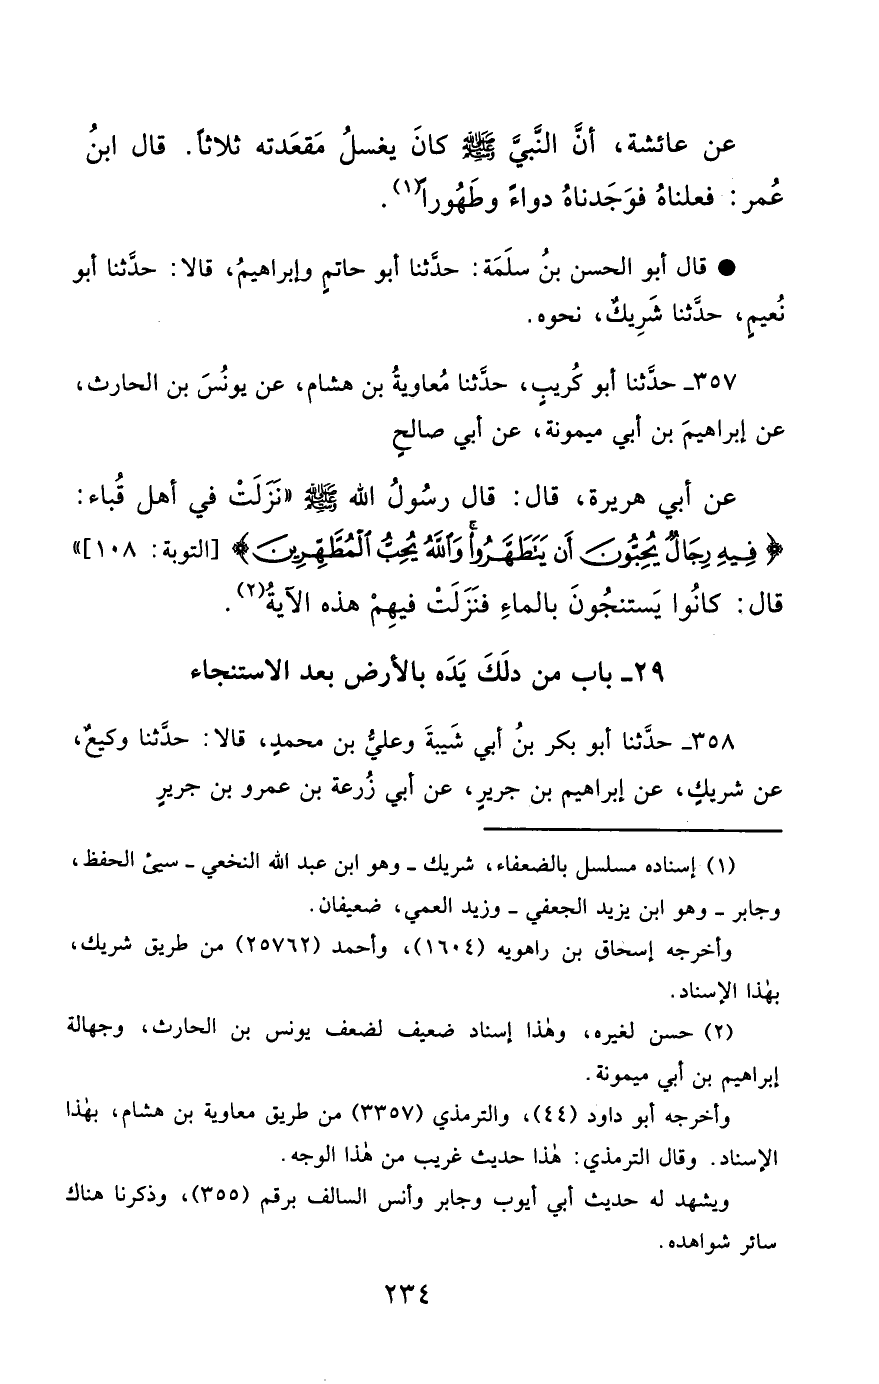 عن عائشة، أنَّ النَّبيَّ ﷺ كانَ يغسلُ مَقعَدته ثلاثاً. قال ابنُ
عُمر: فعلناهُ فوَجَدناهُ دواءً وطَهُوراً(١).
● قال أبو الحسن بنُ سلَمَة: حدَّثنا أبو حاتمٍ وإبراهيمُ، قالا: حدَّثنا أبو
نُعيمٍ، حدَّثنا شَرِيكٌ، نحوه.
٣٥٧ـ حدَّثنا أبو كُريبٍ، حدَّثنا مُعاويةُ بن هشام، عن يونُسَ بن الحارث،
عن إبراهيمَ بن أبي ميمونة، عن أبي صالحٍ
عن أبي هريرة، قال: قال رسُولُ الله ﷺ «نَزَلَتْ في أهل قُباء:
﴿فِيهِ رِجَالٌ يُحِبُّونَ أَن يَتَطَهَّرُواْۚ وَٱللَّهُ يُحِبُّ ٱلْمُطَّهِّرِينَ﴾ [التوبة: ١٠٨]»
قال: كانُوا يَستنجُونَ بالماءِ فنَزَلَتْ فيهِمْ هذه الآيةُ(٢).
٢٩ـ باب من دلَكَ يَدَه بالأرض بعد الاستنجاء
٣٥٨ـ حدَّثنا أبو بكر بنُ أبي شَيبةَ وعليُّ بن محمدٍ، قالا: حدَّثنا وكيعٌ،
عن شريكٍ، عن إبراهيم بن جريرٍ، عن أبي زُرعة بن عمرو بن جريرٍ
(١) إسناده مسلسل بالضعفاء، شريك ـ وهو ابن عبد الله النخعي ـ سيئ الحفظ،
وجابر ـ وهو ابن يزيد الجعفي ـ وزيد العمي، ضعيفان.
وأخرجه إسحاق بن راهويه (١٦٠٤)، وأحمد (٢٥٧٦٢) من طريق شريك،
بهٰذا الإسناد.
(٢) حسن لغيره، وهٰذا إسناد ضعيف لضعف يونس بن الحارث، وجهالة
إبراهيم بن أبي ميمونة.
وأخرجه أبو داود (٤٤)، والترمذي (٣٣٥٧) من طريق معاوية بن هشام، بهٰذا
الإسناد. وقال الترمذي: هٰذا حديث غريب من هٰذا الوجه.
ويشهد له حديث أبي أيوب وجابر وأنس السالف برقم (٣٥٥)، وذكرنا هناك
سائر شواهده.
٢٣٤